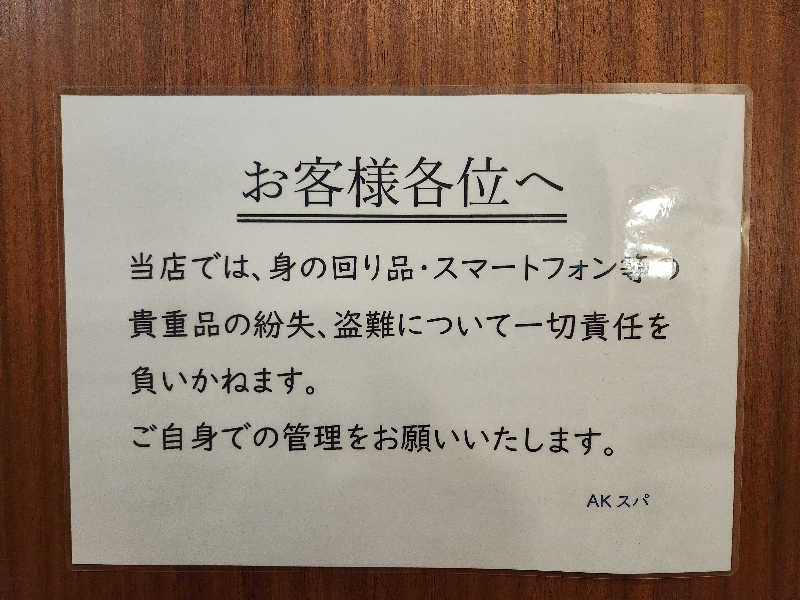 お客様各位へ
当店では、身の回り品・スマートフォン等の
貴重品の紛失、盗難について一切責任を
負いかねます。
ご自身での管理をお願いいたします。
AKスパ